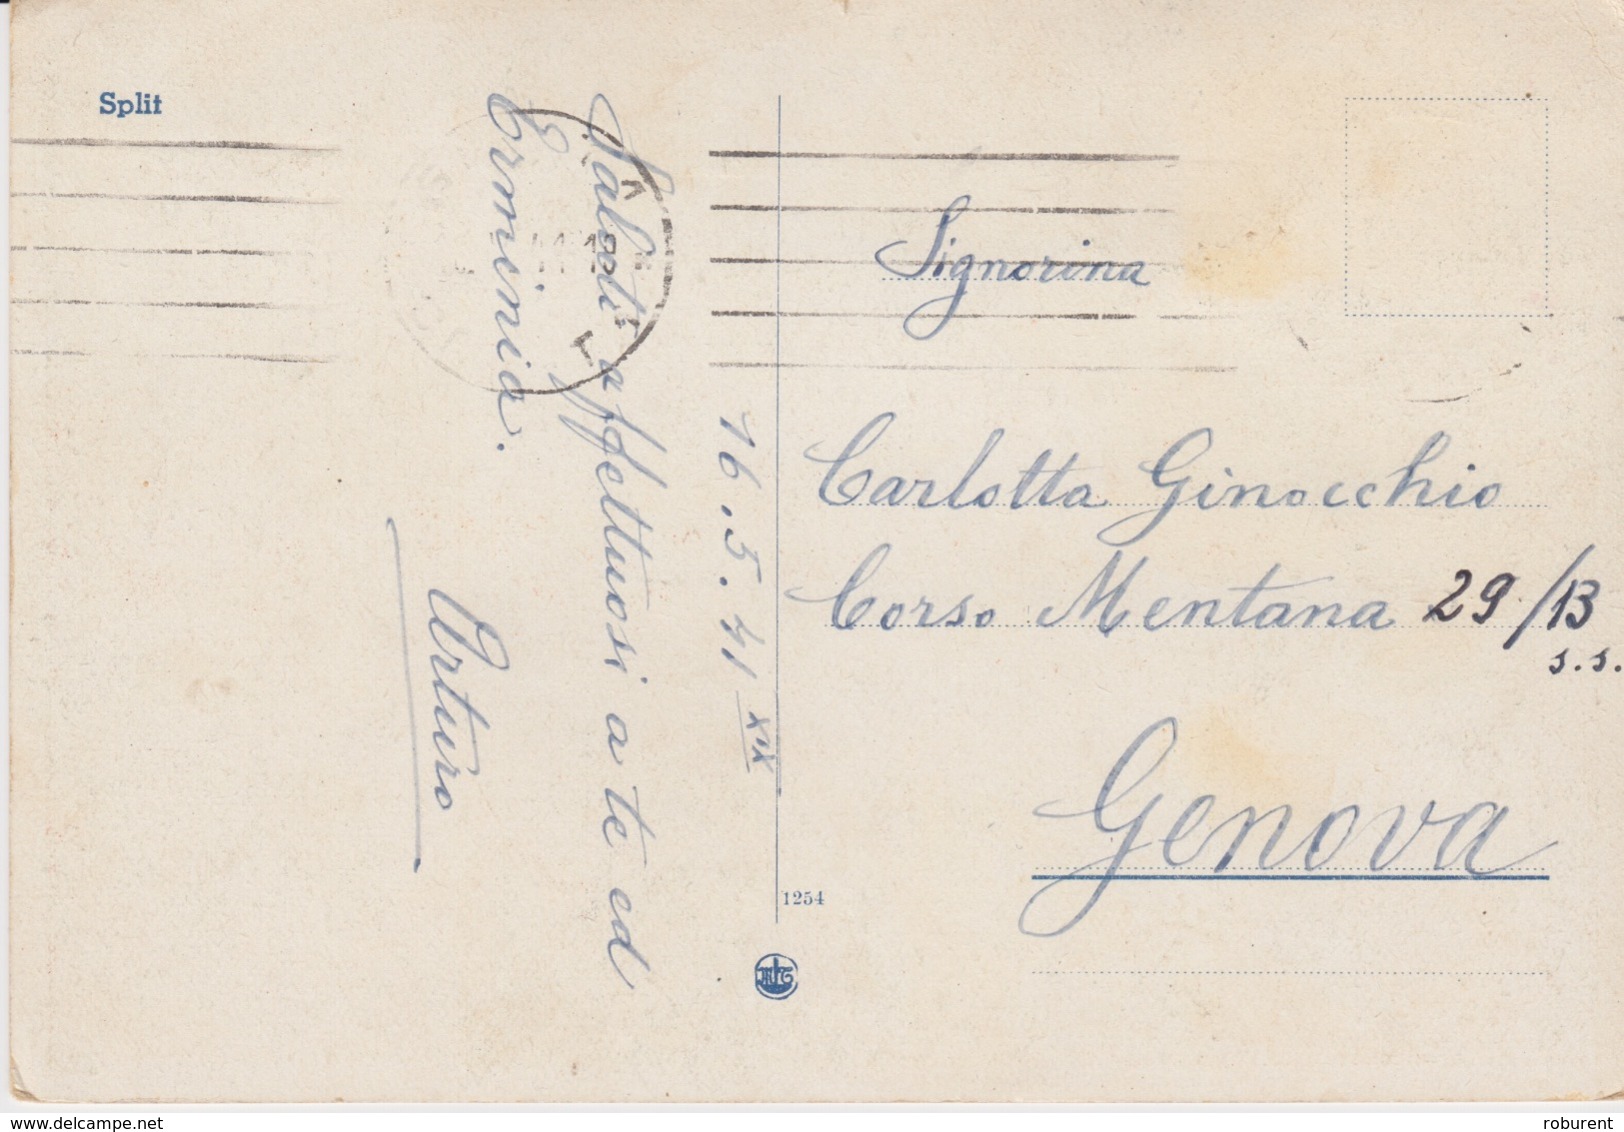 Split
16.5.41 XIX
Saluti affettuosi a te ed
Erminia.
Arturo
Signorina
Carlotta Ginocchio
Corso Mentana 29/13
s.s.
Genova
1254
delcampe.net
roburent